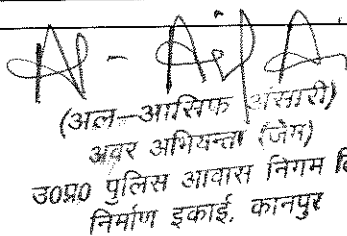 (अल-आसिफ अंसारी)
अवर अभियन्ता (जेम)
उ०प्र० पुलिस आवास निगम लि
निर्माण इकाई, कानपुर